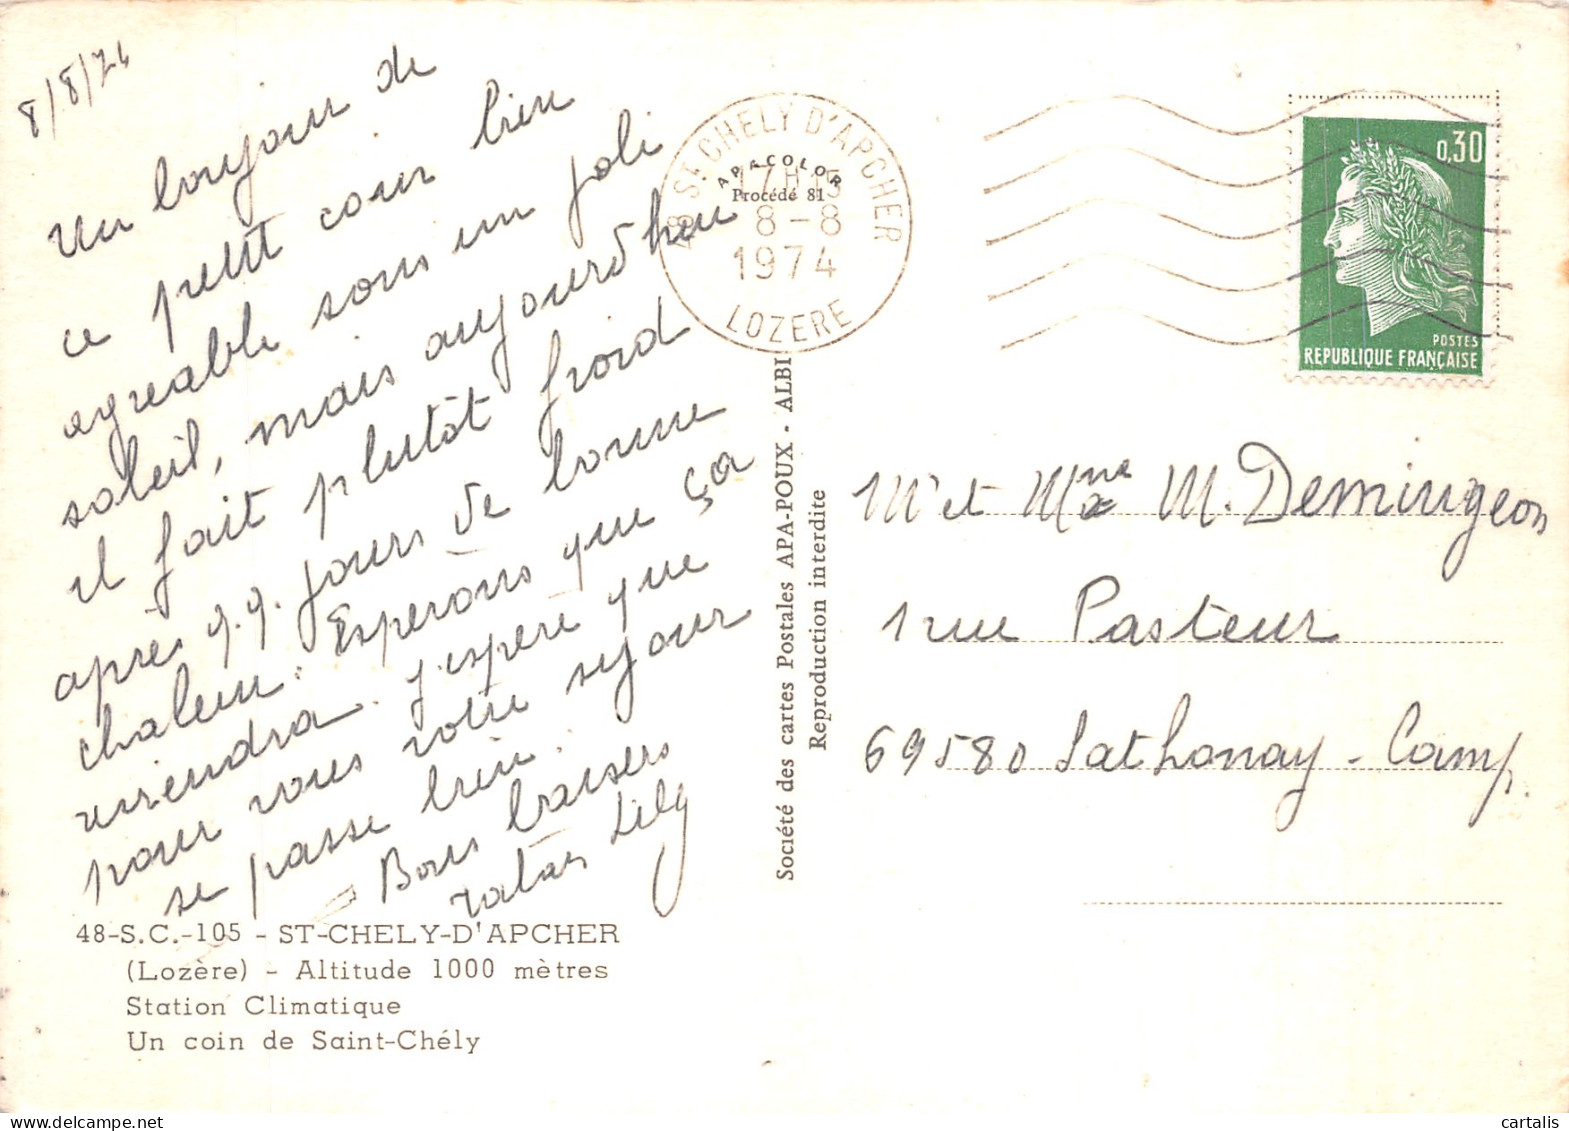 8/8/74
Un bonjour de
ce petit coin bien
agreable sous un joli
soleil, mais aujourd'hui
il fait plutôt froid
après q.q. jours de bonne
chaleur. Esperons que ça
viendra. J'espère que
pour vous votre sejour
se passe bien.
Bons baisers
Lily
48-S.C.-105 - ST-CHELY-D'APCHER
(Lozère) - Altitude 1000 mètres
Station Climatique
Un coin de Saint-Chély
48 ST CHELY D'APCHER
APACOLOR
Procédé 81
17H15
8-8
1974
LOZERE
Société des cartes Postales APA-POUX - ALBI
Reproduction interdite
0,30
POSTES
REPUBLIQUE FRANÇAISE
Mr et Mme M. Demingeon
1 rue Pasteur
69580 Sathonay-Camp.
cartalis